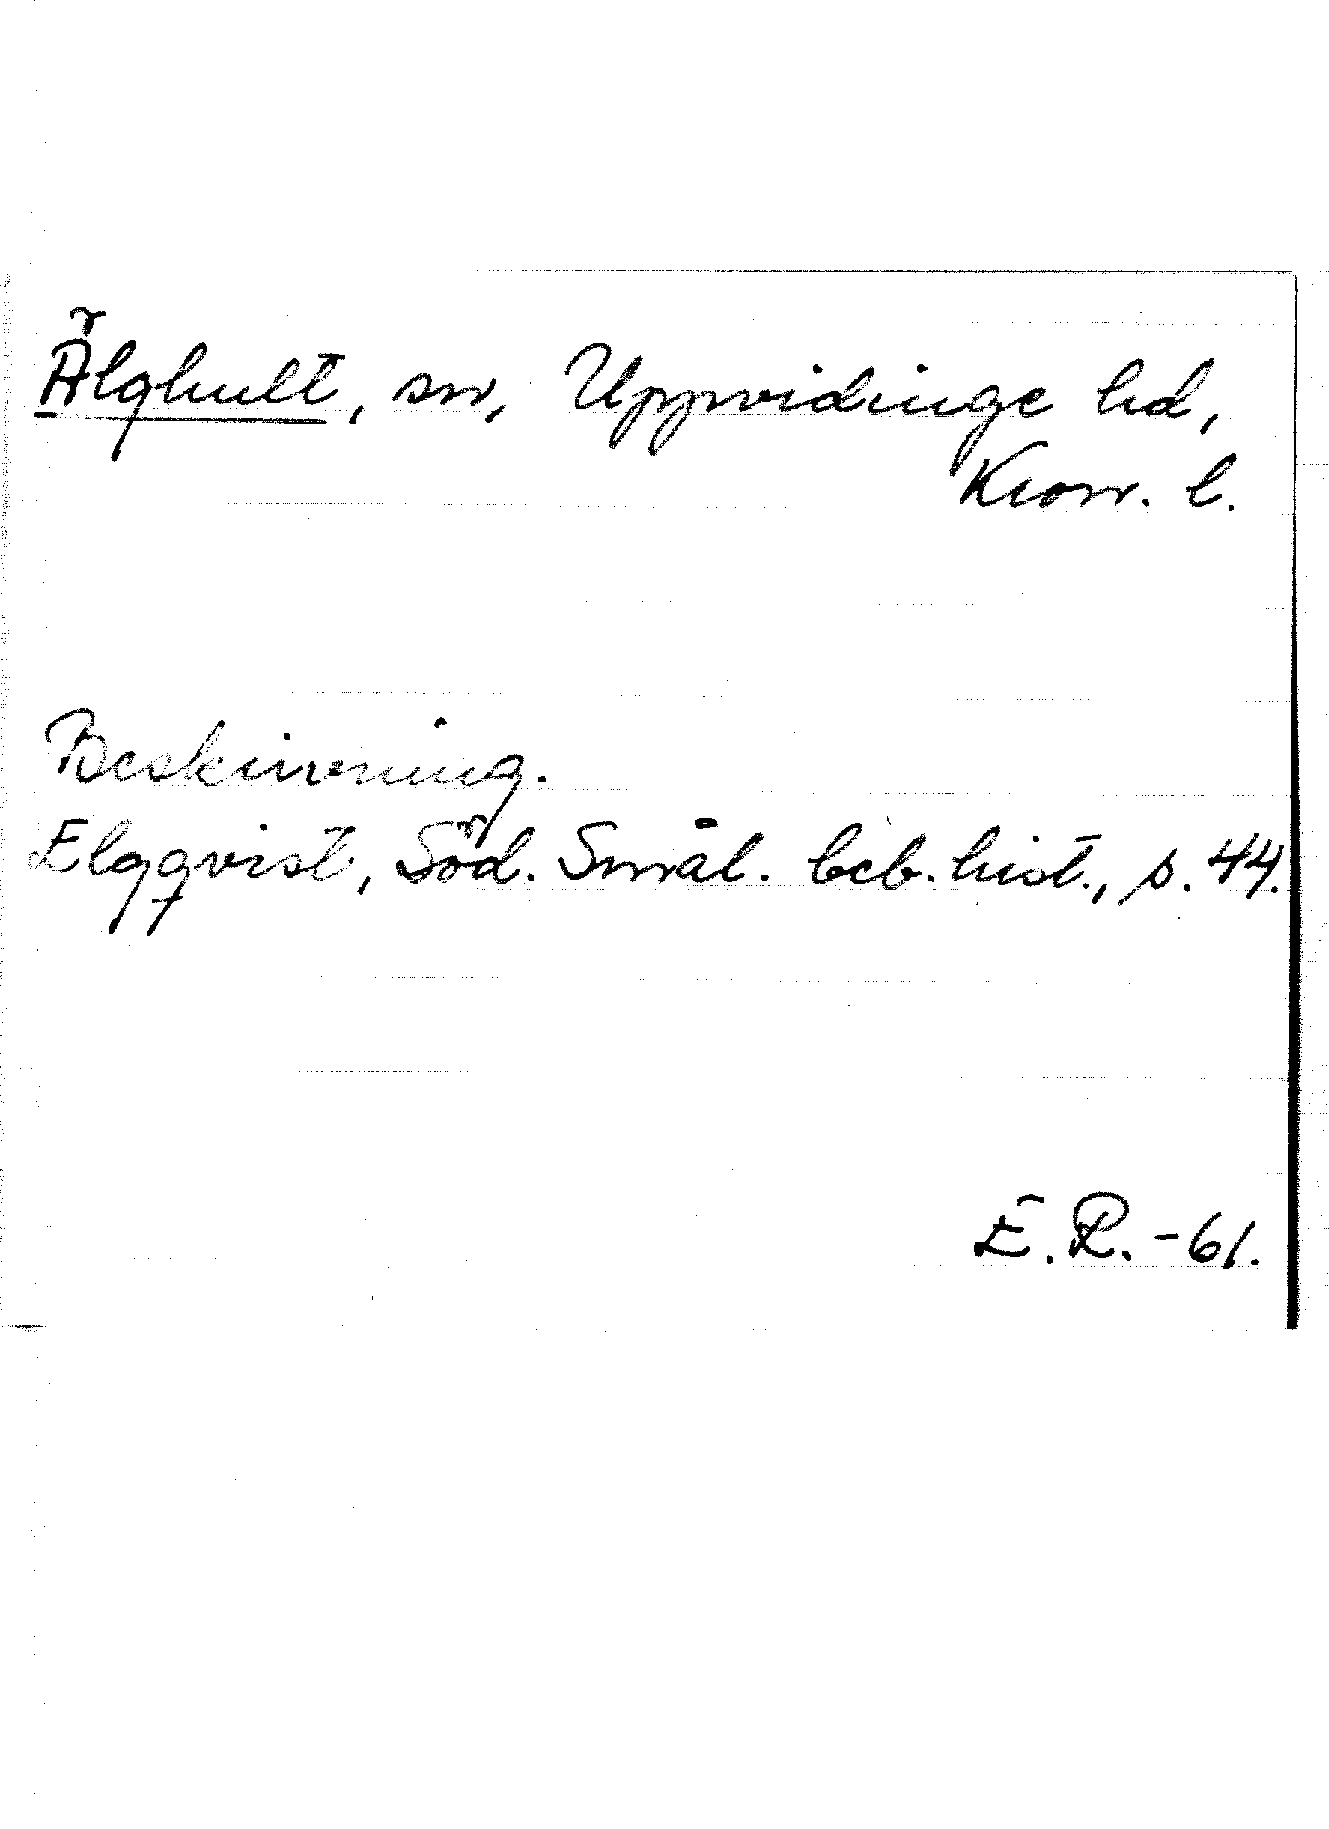 Älghult, sn, Uppvidinge hd,
Kron. l.
Beskrivning.
Elgqvist, Söd. Smål. beb. hist., s. 44.
E. R. -61.